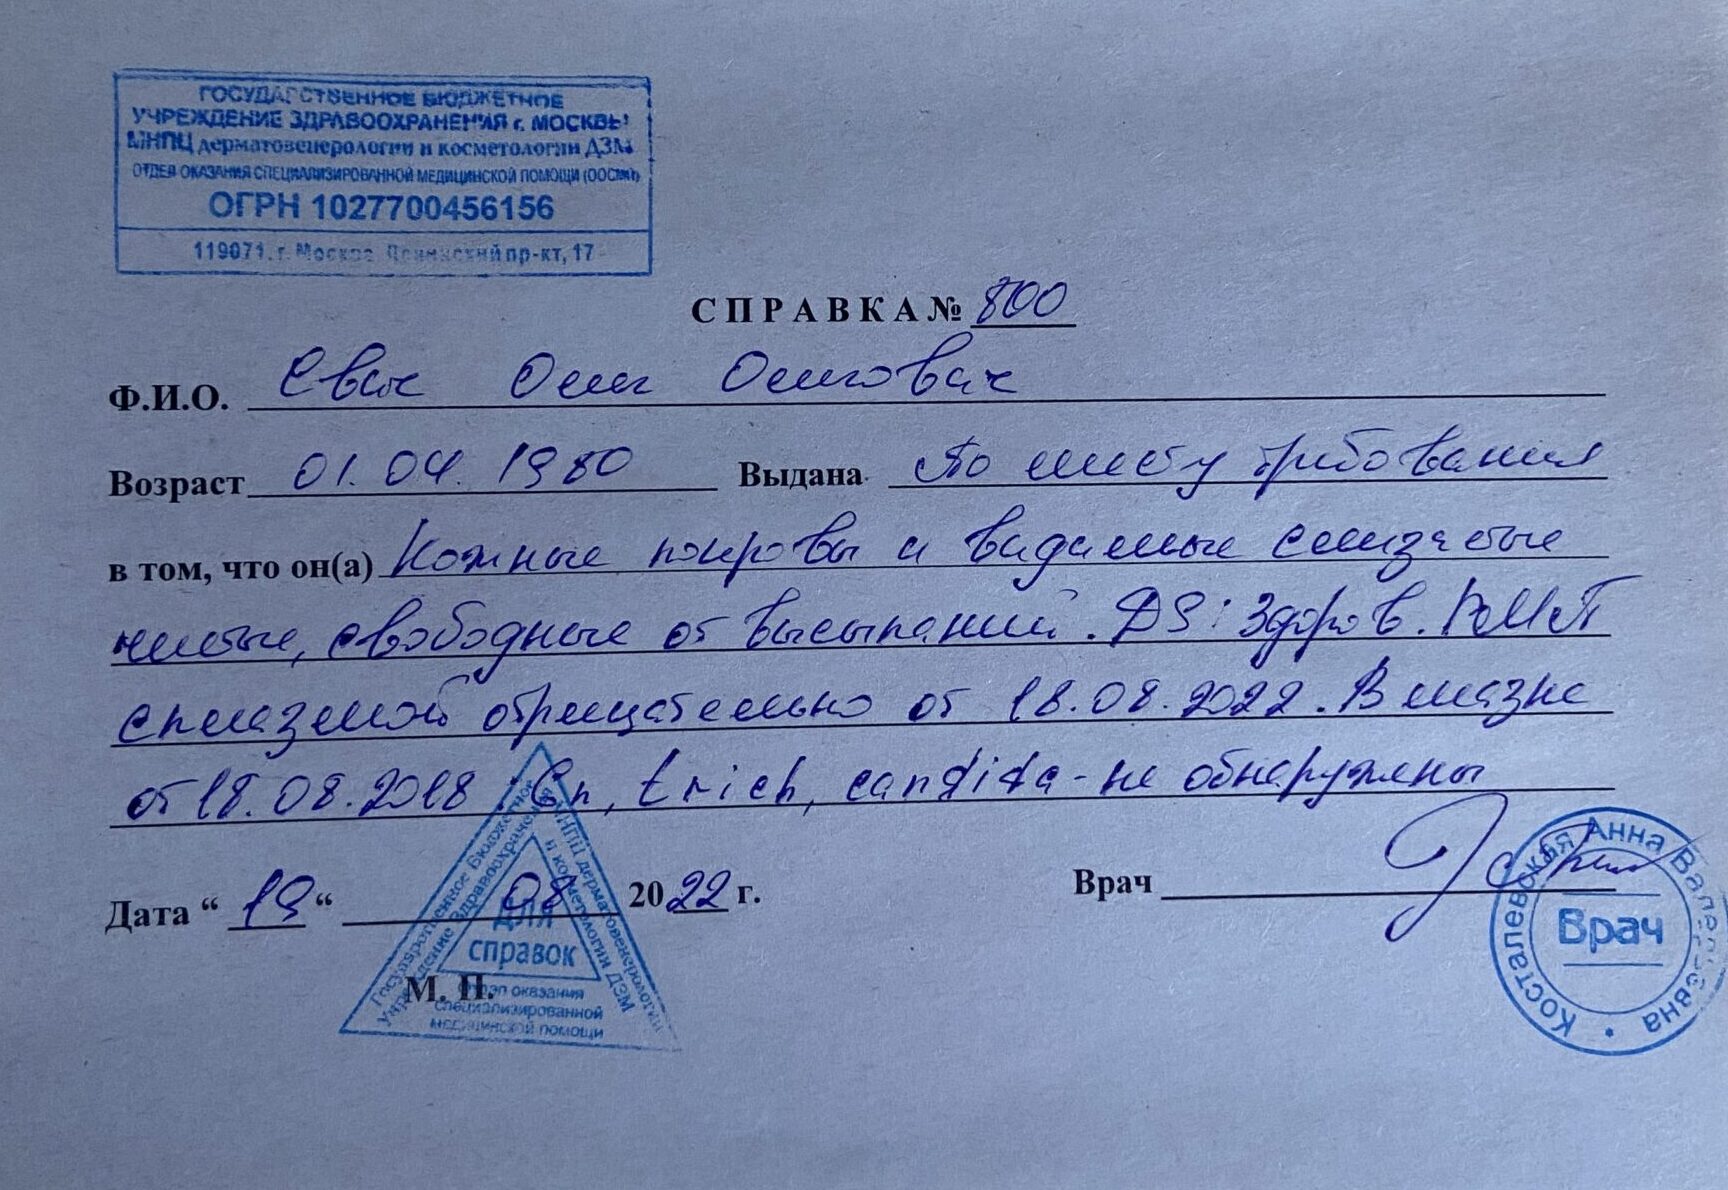 ГОСУДАРСТВЕННОЕ БЮДЖЕТНОЕ
УЧРЕЖДЕНИЕ ЗДРАВООХРАНЕНИЯ г. МОСКВЫ
МНПЦ дерматовенерологии и косметологии ДЗМ
ОТДЕЛ ОКАЗАНИЯ СПЕЦИАЛИЗИРОВАННОЙ МЕДИЦИНСКОЙ ПОМОЩИ
ОГРН 1027700456156
119071, г. Москва, Ленинский пр-кт, 17
СПРАВКА № 800
Ф.И.О. Олег Олегович
Возраст 01.04.1980 Выдана По месту требования
в том, что он(а) Кожные покровы и видимые слизистые
чистые, свободные от высыпаний. DS: Здоров. РМП
с плазмой отрицательно от 18.08.2022. В мазке
от 18.08.2018: Gn, trich, candida - не обнаружены
Дата “ 19 “ 08 2022 г.
Врач
М. П.
Государственное Бюджетное
Учреждение Здравоохранения
МНПЦ дерматовенерологии
и косметологии ДЗМ
для
справок
Отдел оказания
специализированной
медицинской помощи
Косталевская Анна Валерьевна
Врач